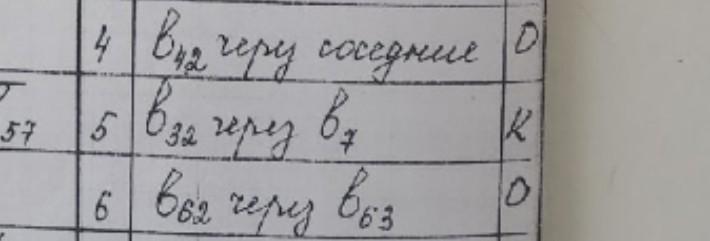 4 в42 через соседние О
57 5 в32 через в7 К
6 в62 через в63 О